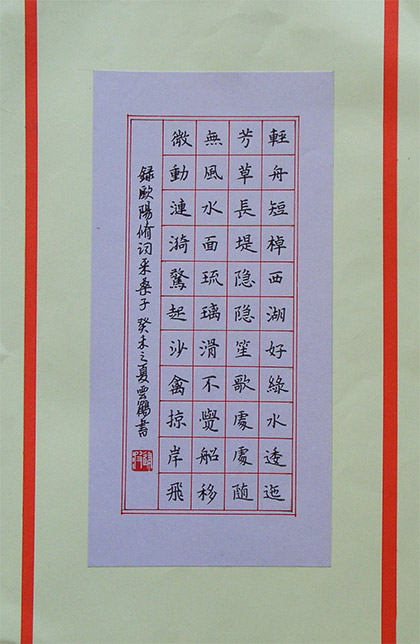 輕舟短棹西湖好綠水逶迤
芳草長堤隐隐笙歌處處随
無風水面琉璃滑不覺船移
微動漣漪驚起沙禽掠岸飛
録歐陽脩词采桑子 癸未之夏雲鶴書